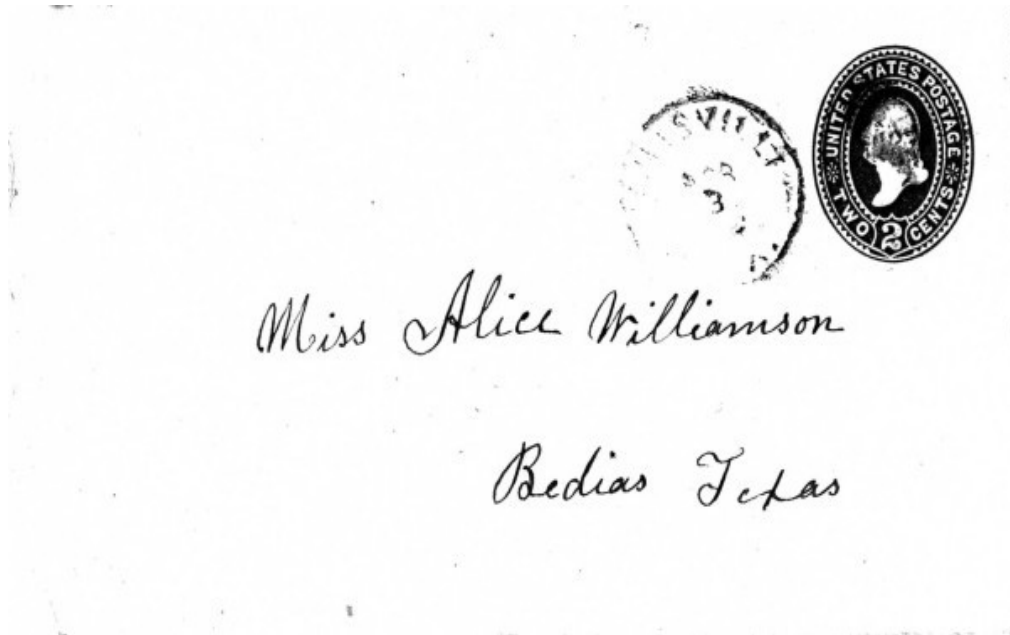 UNITED STATES POSTAGE
TWO 2 CENTS
3
Miss Alice Williamson
Bedias Texas